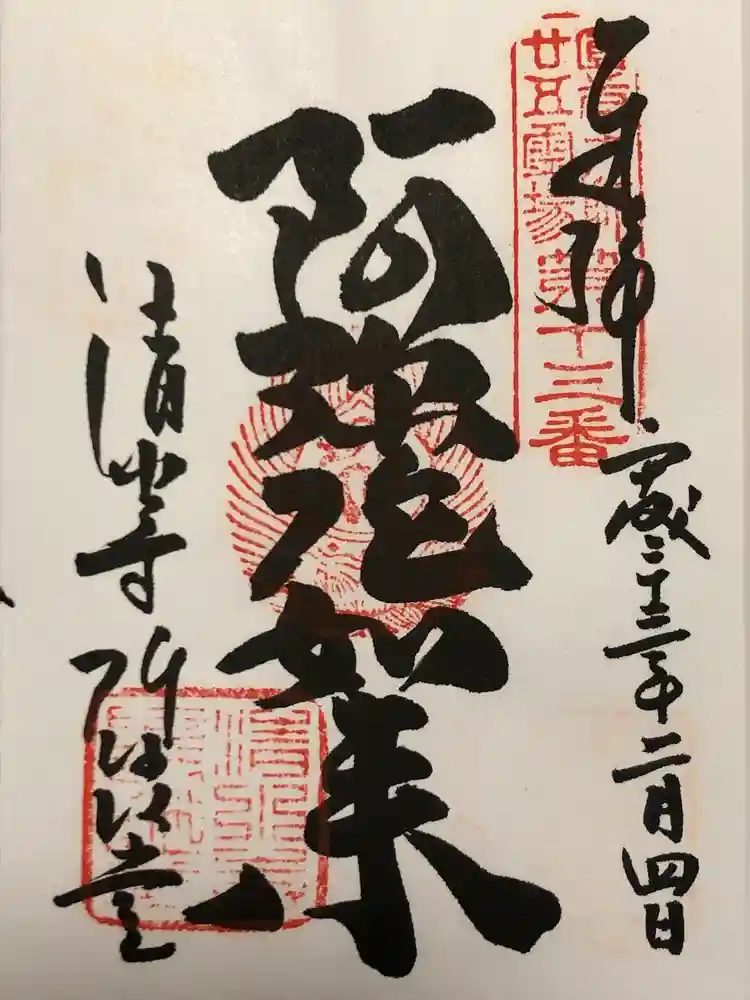 奉拝
圓光大師
廿五霊場第十三番
平成二十三年二月四日
阿彌陀如来
清水寺 阿弥陀堂